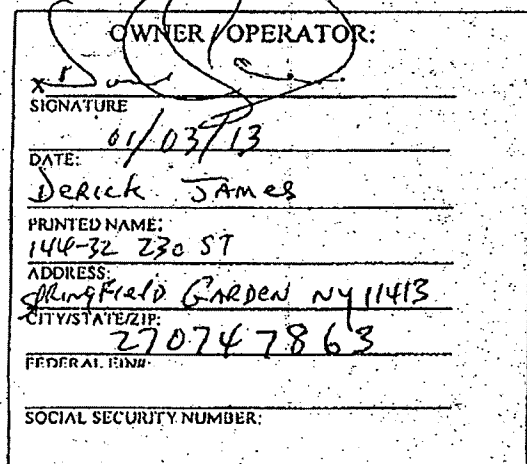 OWNER/OPERATOR:
x
SIGNATURE
01/03/13
DATE:
Derick James
PRINTED NAME:
144-32 230 ST
ADDRESS:
Springfield Garden NY 11413
CITY/STATE/ZIP:
270747863
FEDERAL EIN#:
SOCIAL SECURITY NUMBER: